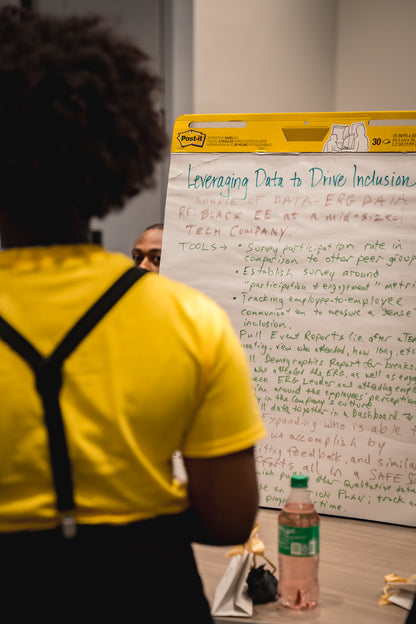 Post-it
30
Leveraging Data to Drive Inclusion
SOURCE OF DATA - ERG DATA
RE: BLACK EE at a mid-sized
TECH COMPANY.
TOOLS → • Survey participation rate in
comparison to other peer group
• Establish survey around
"participation & engagement" metri
• Tracking employee-to-employee
communication to measure a sense
inclusion.
Pull Event Reports (i.e. after
who attended, how long, etc.
Demographics Report for breakdo
who attended the ERG, as well as eng
ERG Leader and attending emplo
around the employees' perception
in the company's culture
data together in a Dashboard.
Expanding who is able t
we accomplish by
feedback, and simila
efforts all in a SAFE
other Qualitative data
track
time.